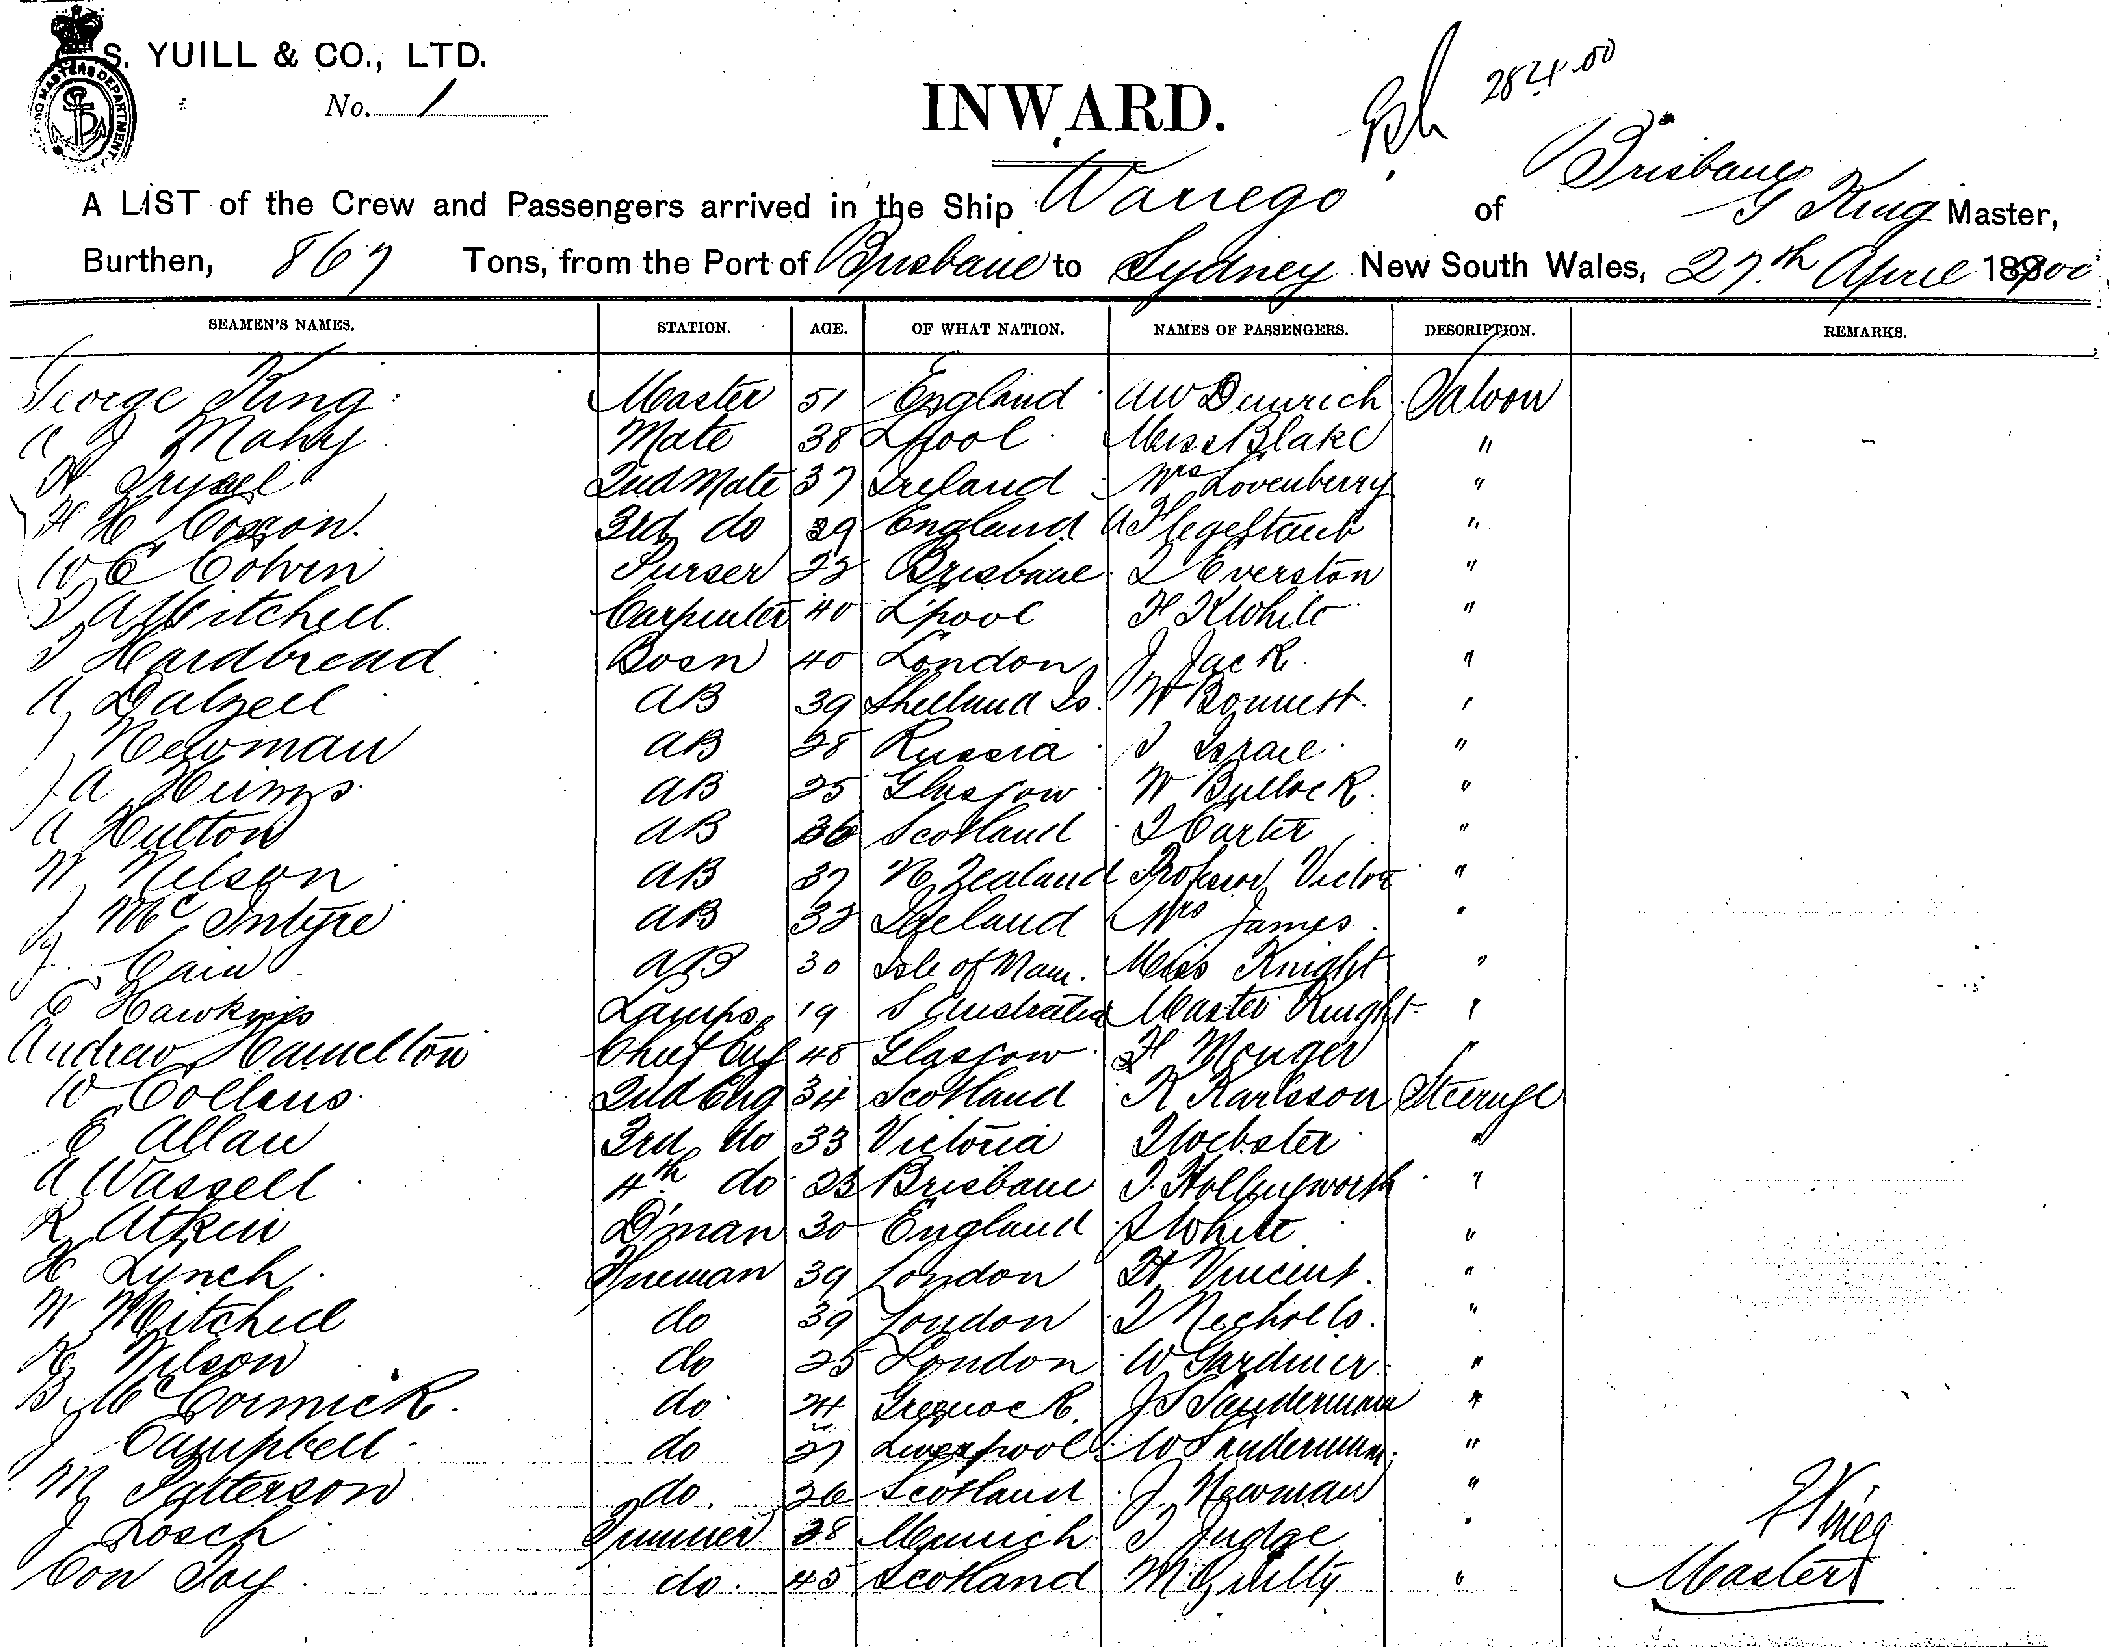 S. YUILL & CO., LTD.
No. 1
INWARD.
2824.00
Brisbane
A LIST of the Crew and Passengers arrived in the Ship Warrego of G King Master,
Burthen, 867 Tons, from the Port of Brisbane to Sydney New South Wales, 27th April 1900
SEAMEN'S NAMES. STATION. AGE. OF WHAT NATION. NAMES OF PASSENGERS. DESCRIPTION. REMARKS.
George King Master 51 England A W Dimrich Saloon
J Mahy Mate 38 L'pool Miss Blake "
H 2nd Mate 37 Ireland Mrs Lovenberry "
H H Coxon 3rd do 29 England "
W E Colvin Purser 22 Brisbane L Everston "
T A Mitchell Carpenter 40 L'pool H K White "
T Hardbread Bosn 40 London J Jack "
A Dalzell AB 39 Shetland Is. W Bonnett "
J Newman AB 28 Russia I Israel "
J A AB 25 Glasgow W Bullock "
A Hutton AB 36 Scotland T Carter "
W Nelson AB 37 N Zealand Professor Victor "
J McIntyre AB 32 Ireland Mrs James "
J Cain AB 30 Isle of Man Miss Knight "
E Hawkins Lamps 19 S Australia Master Knight "
Andrew Hamelton Chief Eng 48 Glasgow H Monger "
W Collins 2nd Eng 34 Scotland K Karlsson Steerage
E Allan 3rd do 33 Victoria T Webster "
A Wassell 4th do 23 Brisbane T. Hollingworth "
R Atkin D'man 30 England S White "
H Lynch Fireman 39 London H Vincent "
W Mitchell do 39 London T Nicholls "
R Wilson do 25 London W Gardiner "
B McCormick do 24 Greenock J S Sanderman "
J Campbell do 27 Liverpool W Sanderman "
M Patterson do. 26 Scotland J Newman "
J Losch Trimmer 28 Munich T Judge "
Con Foy do. 45 Scotland M Guilty "
G King
Master